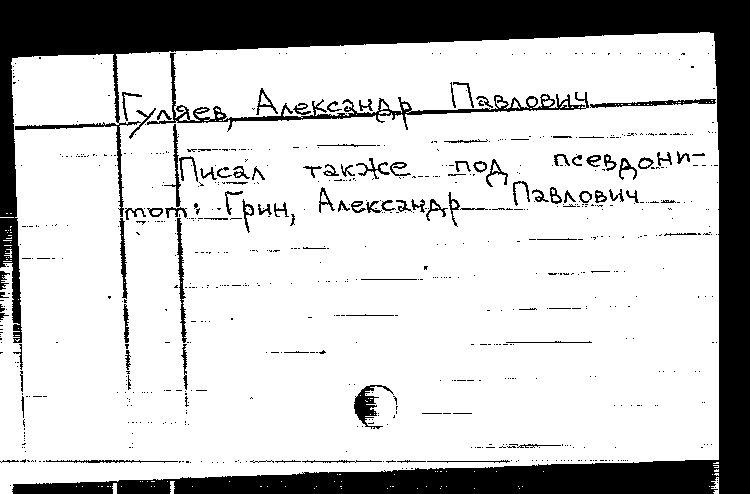 Гуляев, Александр Павлович
Писал также под псевдони-
мом: Грин, Александр Павлович